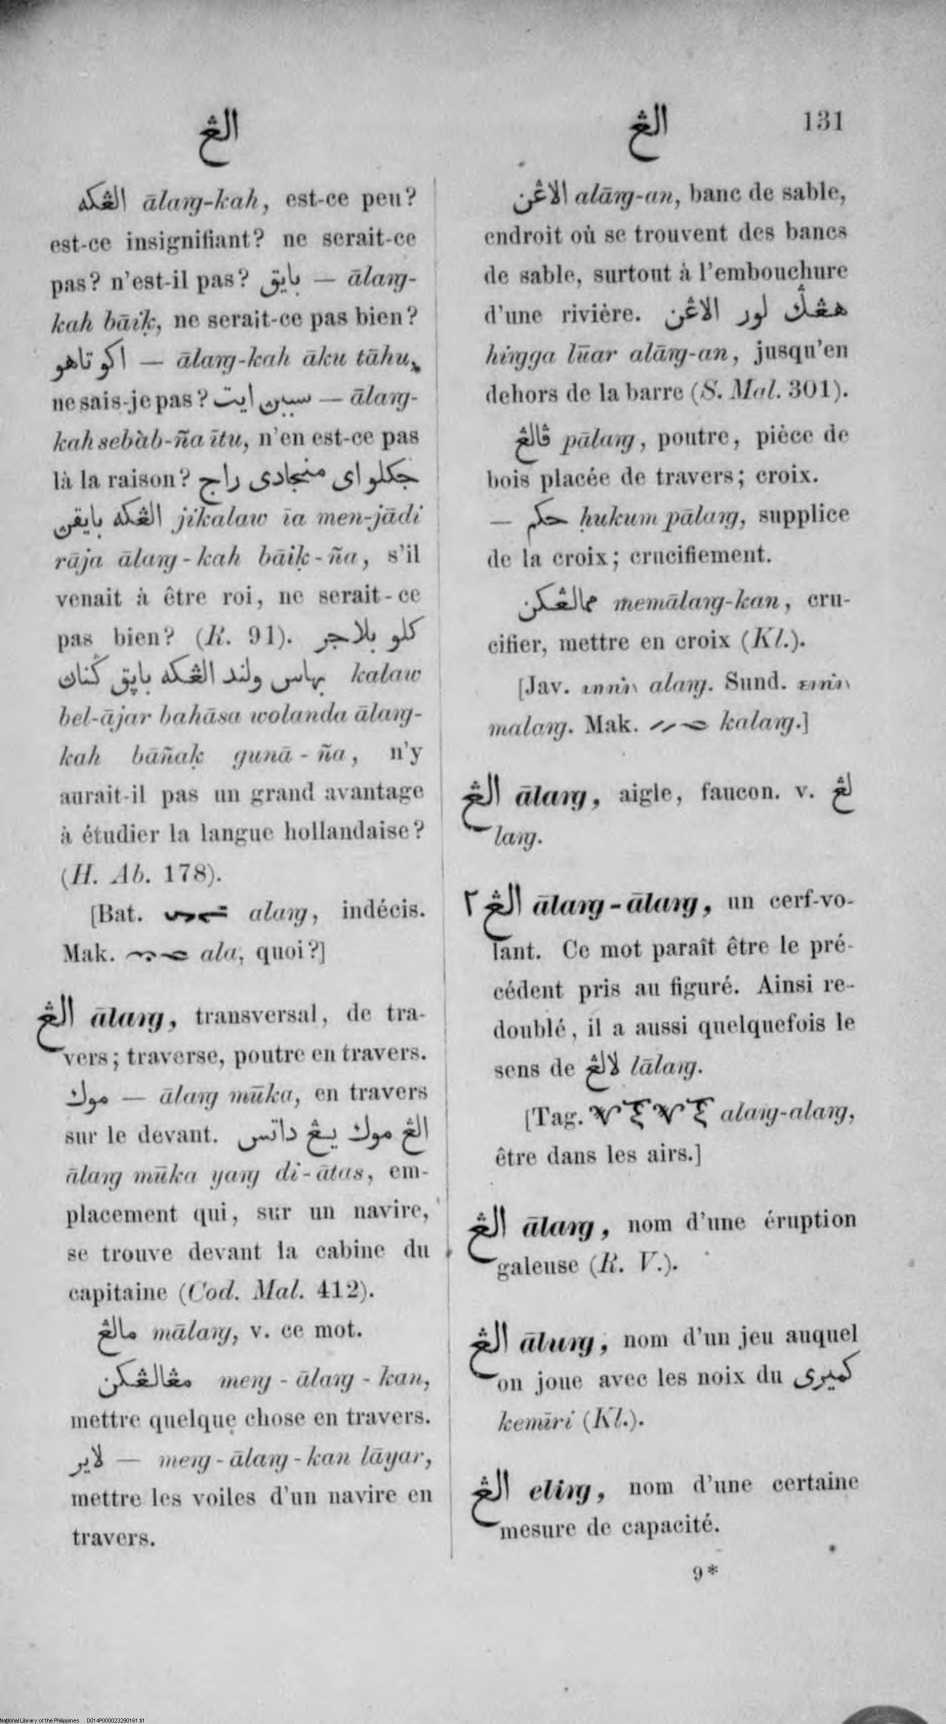 الڠ
الڠ 131
الڠكه ālaŋ-kah, est-ce peu?
est-ce insignifiant? ne serait-ce
pas? n'est-il pas? بايق — ālaŋ-
kah bāiḳ, ne serait-ce pas bien?
اكو تاهو — ālaŋ-kah āku tāhu,
ne sais-je pas? سببڽ ايت — ālaŋ-
kah sebàb-ña ītu, n'en est-ce pas
là la raison? جكلو اى منجادى راج
الڠكه بايقڽ jikalaw īa men-jādi
rāja ālaŋ-kah bāiḳ-ña, s'il
venait à être roi, ne serait-ce
pas bien? (R. 91). كلو بلاجر
بهاس ولند الڠكه باڽق ݢناڽ kalaw
bel-ājar bahāsa wolanda ālaŋ-
kah bāñaḳ gunā-ña, n'y
aurait-il pas un grand avantage
à étudier la langue hollandaise?
(H. Ab. 178).
[Bat. alaŋ, indécis.
Mak. ala, quoi?]
الڠ ālaŋ, transversal, de tra-
vers; traverse, poutre en travers.
موك — ālaŋ mūka, en travers
sur le devant. الڠ موك يڠ داتس
ālaŋ mūka yaŋ di-ātas, em-
placement qui, sur un navire,
se trouve devant la cabine du
capitaine (Cod. Mal. 412).
مالڠ mālaŋ, v. ce mot.
مڠالڠكن meŋ-ālaŋ-kan,
mettre quelque chose en travers.
لاير — meŋ-ālaŋ-kan lāyar,
mettre les voiles d'un navire en
travers.
الاڠن alāŋ-an, banc de sable,
endroit où se trouvent des bancs
de sable, surtout à l'embouchure
d'une rivière. هڠݢ لور الاڠن
hiŋga lūar alāŋ-an, jusqu'en
dehors de la barre (S. Mal. 301).
ڤالڠ pālaŋ, poutre, pièce de
bois placée de travers; croix.
— حكم ḥukum pālaŋ, supplice
de la croix; crucifiement.
ممالڠكن memālaŋ-kan, cru-
cifier, mettre en croix (Kl.).
[Jav. alaŋ. Sund.
malaŋ. Mak. kalaŋ.]
الڠ ālaŋ, aigle, faucon. v. لڠ
laŋ.
الڠ٢ ālaŋ-ālaŋ, un cerf-vo-
lant. Ce mot paraît être le pré-
cédent pris au figuré. Ainsi re-
doublé, il a aussi quelquefois le
sens de لالڠ lālaŋ.
[Tag. alaŋ-alaŋ,
être dans les airs.]
الڠ ālaŋ, nom d'une éruption
galeuse (R. V.).
الڠ āluŋ, nom d'un jeu auquel
on joue avec les noix du كميرى
kemīri (Kl.).
الڠ eliŋ, nom d'une certaine
mesure de capacité.
9*
National Library of the Philippines